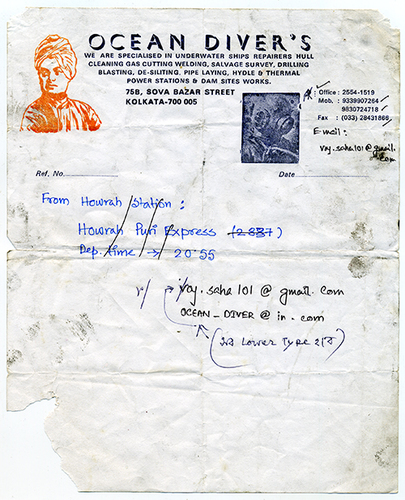 OCEAN DIVER'S
WE ARE SPECIALISED IN UNDERWATER SHIPS REPAIRERS HULL
CLEANING GAS CUTTING WELDING, SALVAGE SURVEY, DRILLING
BLASTING, DE-SILITING, PIPE LAYING, HYDLE & THERMAL
POWER STATIONS & DAM SITES WORKS.
75B, SOVA BAZAR STREET
KOLKATA-700 005
Office : 2554-1519
Mob. : 9339907264
9830724718
Fax : (033) 28431866
E-mail :
vay.saha101@gmail.
com
Ref. No.
Date
From Howrah Station :
Howrah Puri Express (2837)
Dep. time → 20:55
vay.saha101@gmail.com
OCEAN-DIVER@in.com
(সব Lower Type হবে)